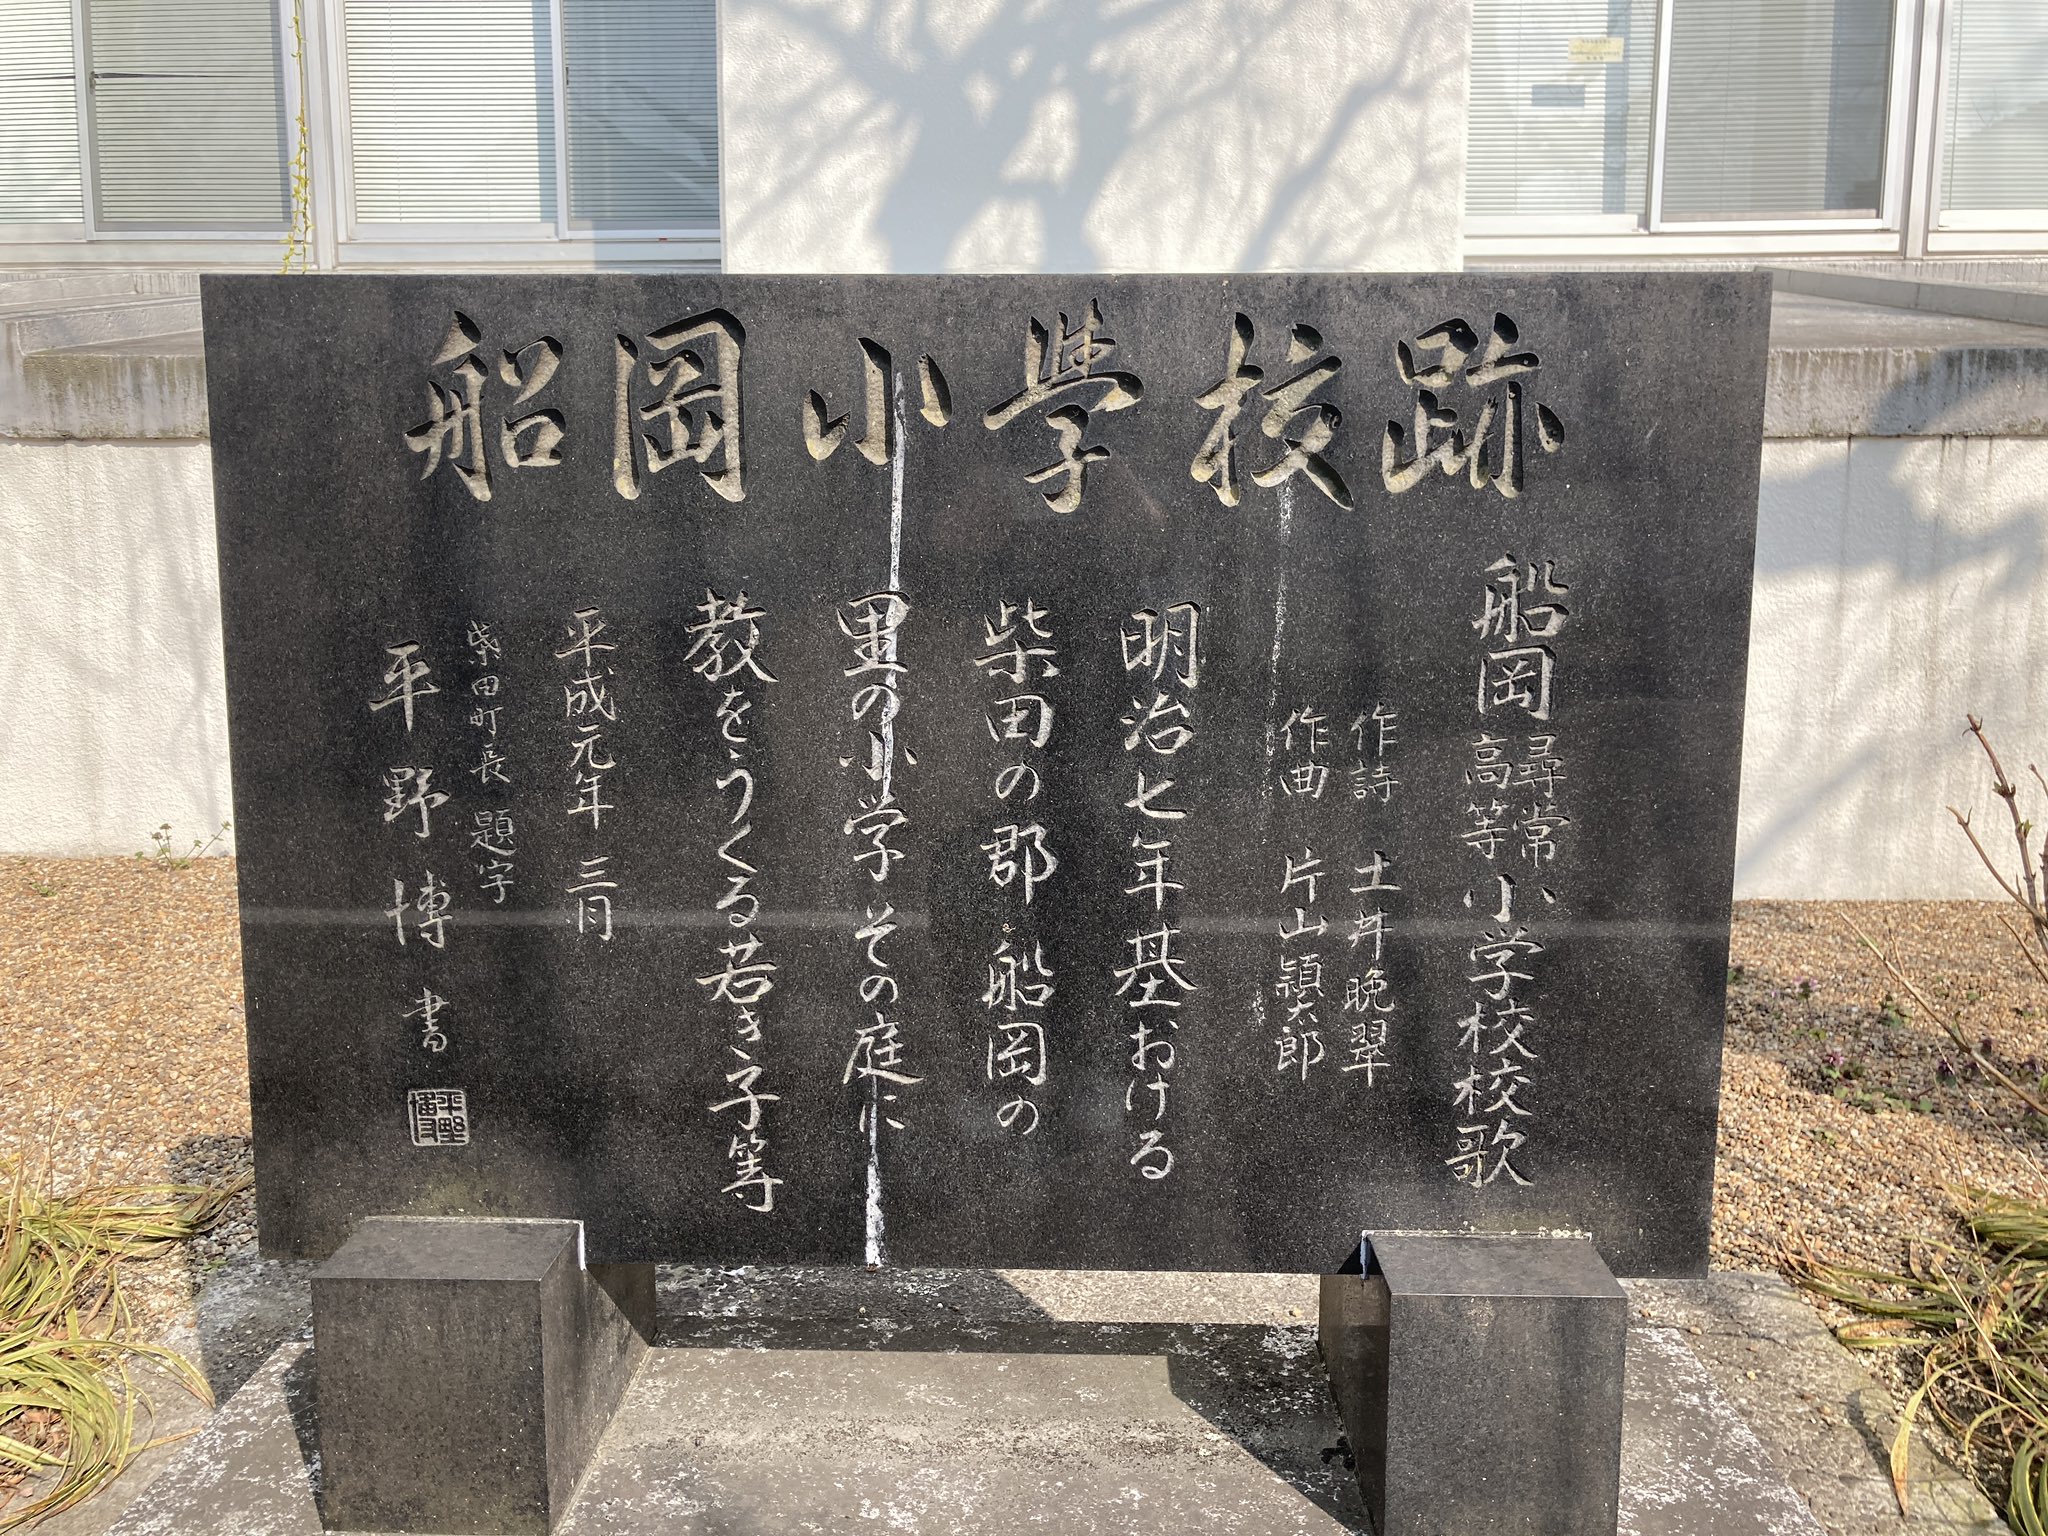 船岡小學校跡
船岡尋常高等小学校校歌
作詩 土井晩翠
作曲 片山頴太郎
明治七年基おける
柴田の郡船岡の
里の小学その庭に
教をうくる若き子等
平成元年三月
柴田町長 題字
平野博書